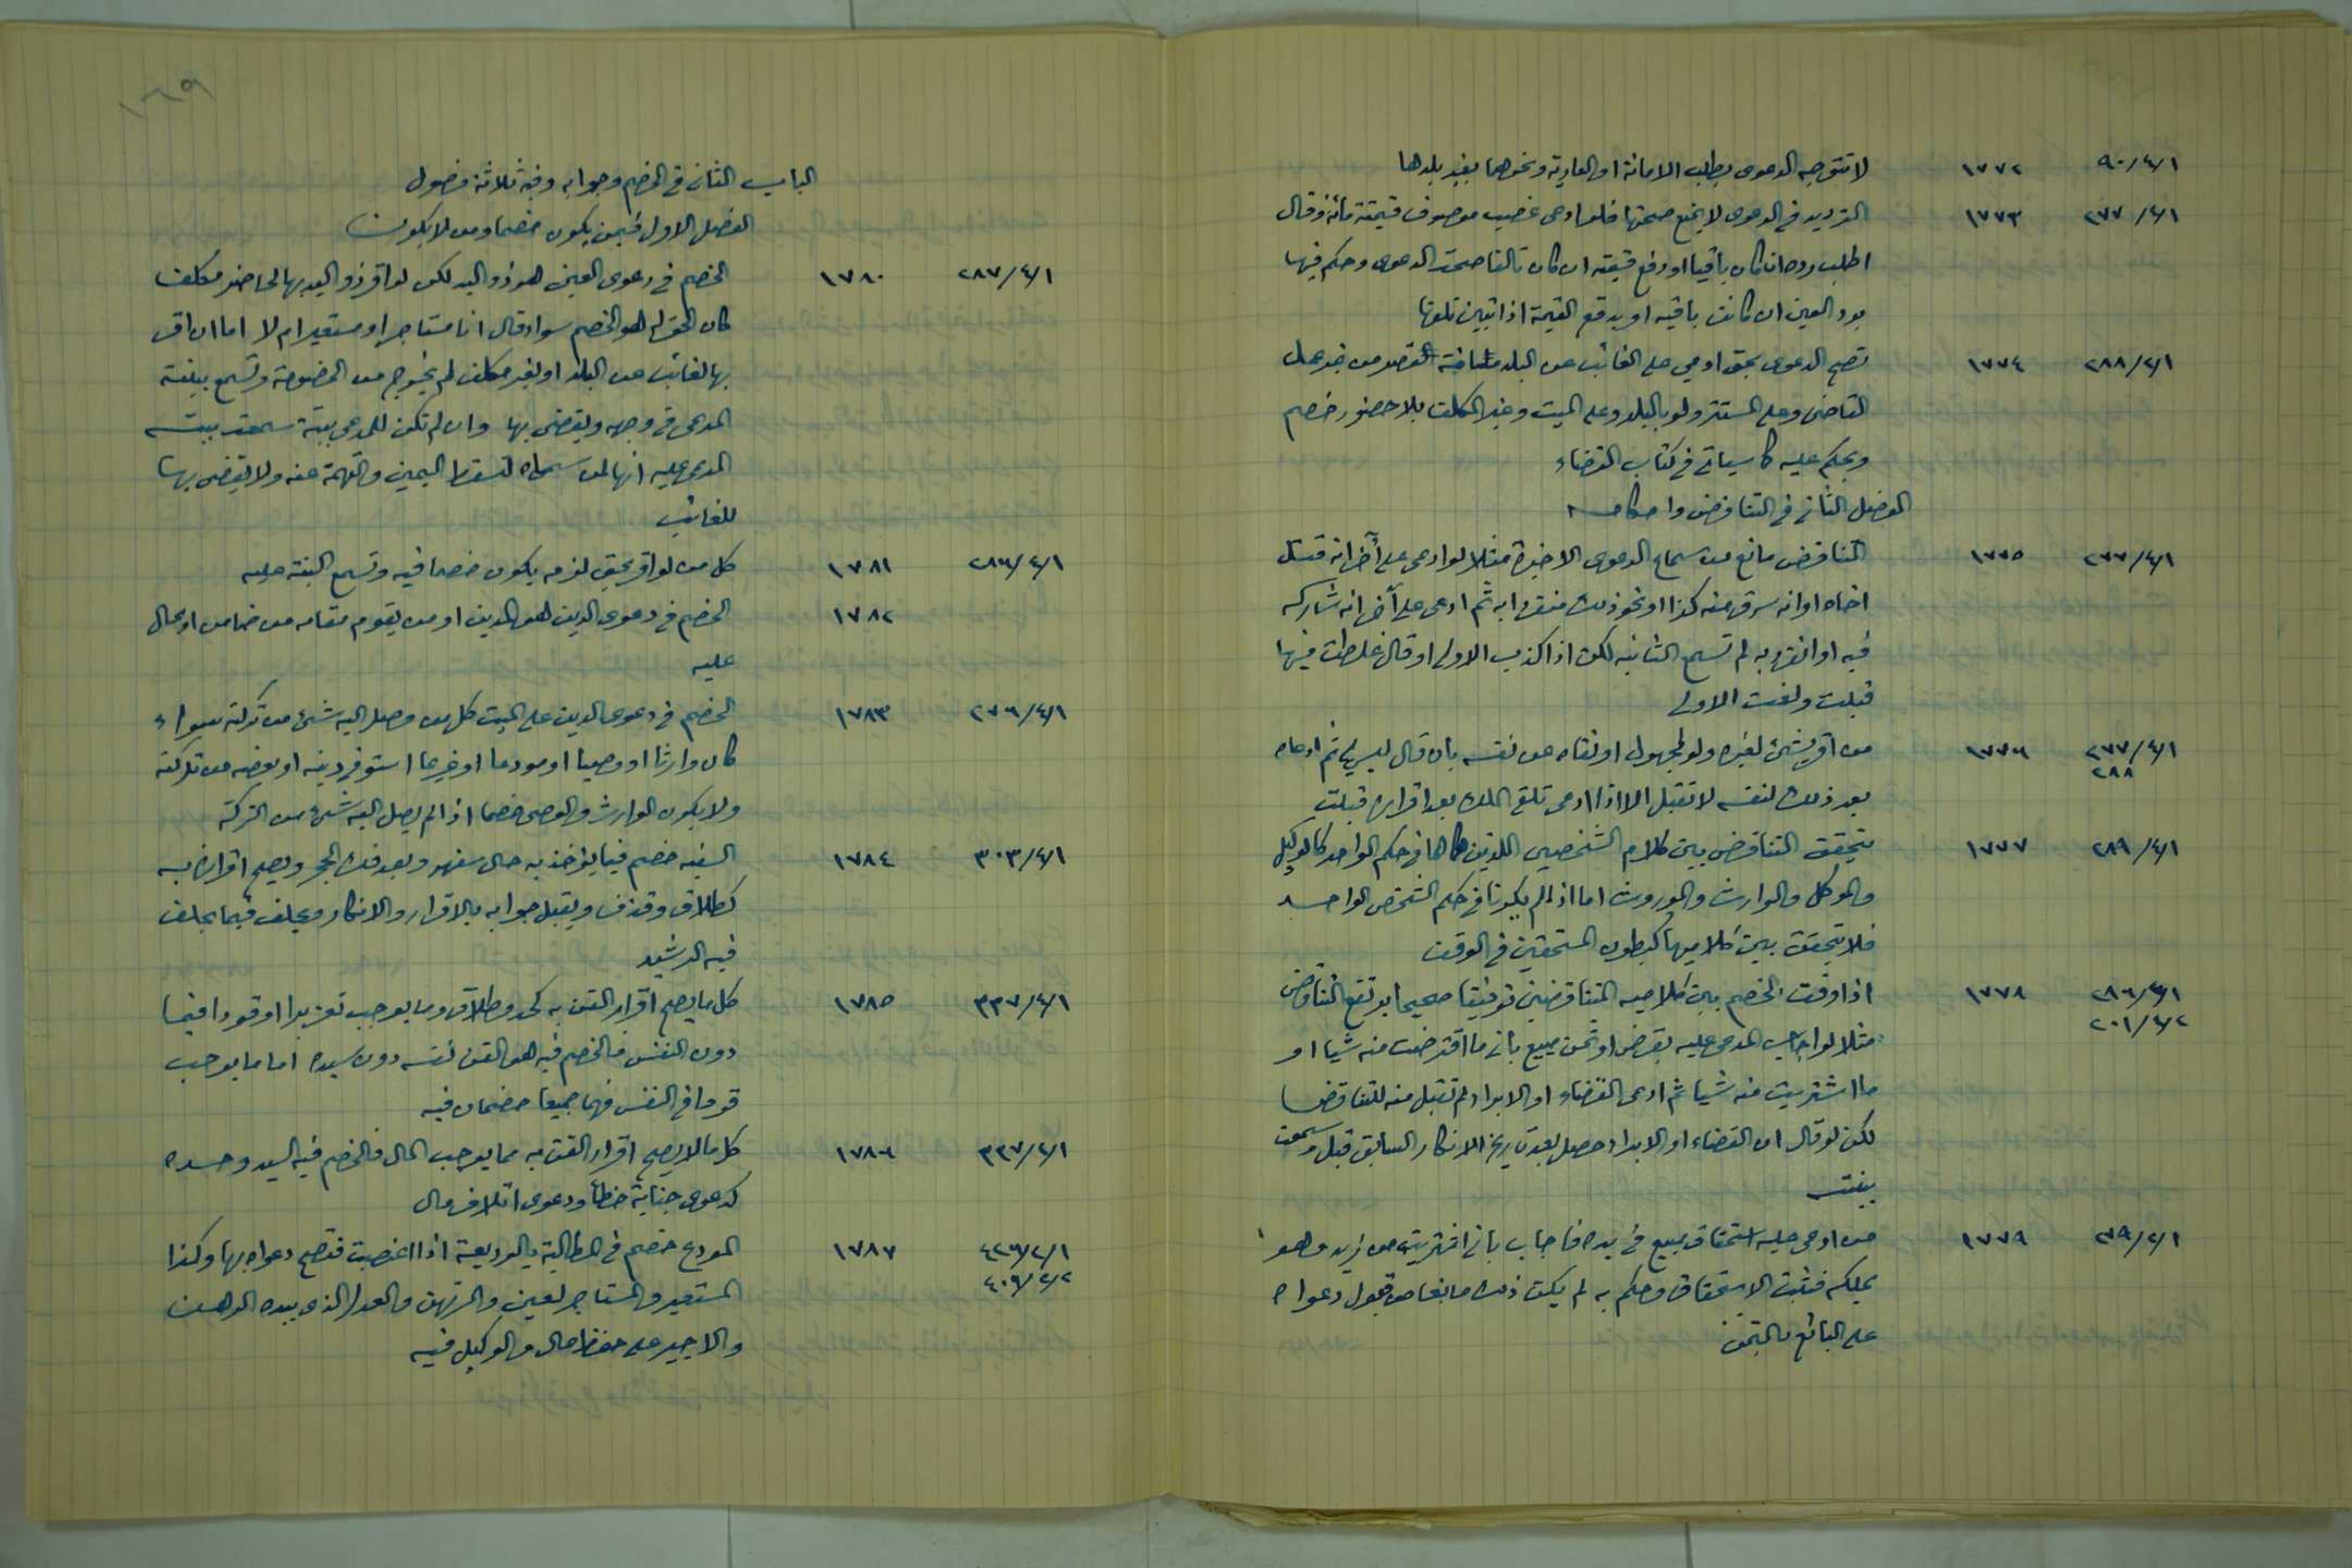 ٩٠/٤/١ ١٧٧٢ لا تتوجه الدعوى بطلب الامانة او العارية ونحوهما بغير بلدها
٢٧٧/٤/١ ١٧٧٣ الترديد في الدعوى لا يمنع صحتها فلو ادعى غصب موصوف قيمته مائة وقال
اطلب رده ان كان باقيا او دفع قيمته ان كان تالفا صحت الدعوى وحكم فيها
برد العين ان كانت باقيه او بدفع القيمة اذا تبين تلفها
٢٨٨/٤/١ ١٧٧٤ تصح الدعوى بحق ادمي على الغائب عن البلد مسافة القصر من غير عمل
القاضي وعلى المستتر ولو بالبلد وعلى الميت وغير المكلف بلا حضور خصم
ويحكم عليه كما سياتي في كتاب القضاء
الفصل الثاني في التناقض واحكامه
٢٧٧/٤/١ ١٧٧٥ التناقض مانع من سماع الدعوى الاخيرة مثلا لو ادعى على آخر انه قتل
اخاه او انه سرق منه كذا او نحو ذلك منفردا به ثم ادعى على آخر انه شاركه
فيه او انفرد به لم تسمع الثانيه لكن اذا كذب الاولى او قال غلطت فيها
قبلت ولغت الاولى
٢٧٧/٤/١ ١٧٧٦ من اقر بشئ لغيره ولو لمجهول او نفاه عن نفسه بان قال ليس لي ثم ادعاه
٢٨٨
بعد ذلك لنفسه لا تقبل الا اذا ادعى تلقي الملك بعد اقراره قبلت
٢٨٩/٤/١ ١٧٧٧ يتحقق التناقض بين كلام الشخصين اللذين هما في حكم الواحد كالوكيل
والموكل والوارث والموروث اما اذا لم يكونا في حكم الشخص الواحد
فلا يتحقق بين كلاميهما كبطون المستحقين في الوقف
٢٨٦/٤/١ ١٧٧٨ اذا وفق الخصم بين كلاميه المتناقضين توفيقا صحيحا يرتفع التناقض
٢٠١/٤/٢
مثلا لو اجاب المدعى عليه بقرض او ثمن مبيع باني ما اقترضت منه شيا او
ما اشتريت منه شيا ثم ادعى القضاء او الابراء لم تقبل منه للتناقض
لكن لو قال ان القضاء او الابراء حصل بعد تاريخ الانكار السابق قبل وسمعت
بينته
٢٧٩/٤/١ ١٧٧٩ من ادعى عليه استحقاق مبيع في يده فاجاب باني اشتريته من زيد وهو
يملكه فثبت الاستحقاق وحكم به لم يكن ذلك مانعا من قبول دعواه
على البائع بالثمن
١٦٩
الباب الثاني في الخصم وجوابه وفيه ثلاثة فصول
الفصل الاول فيمن يكون خصما ومن لا يكون
٢٨٧/٤/١ ١٧٨٠ الخصم في دعوى العين هو ذو اليد لكن لو اقر ذو اليد بها لحاضر مكلف
كان المقر له هو الخصم سواء قال انا مستاجر او مستعير ام لا اما ان اقر
بها لغائب عن البلد او لغير مكلف لم يخرج من الخصومة وتسمع بينة
المدعي في وجهه ويقضى بها وان لم تكن للمدعي بينة سمعت بينة
المدعى عليه انها لمن سماه لتسقط اليمين والتهمة عنه ولا يقضى بها
للغائب
٢٨٦/٤/١ ١٧٨١ كل من لو اقر بحق لزمه يكون خصما فيه وتسمع البينة عليه
١٧٨٢ الخصم في دعوى الدين هو المدين او من يقوم مقامه من ضامن او محال
عليه
٢٧٦/٤/١ ١٧٨٣ الخصم في دعوى الدين على الميت كل من وصل اليه شئ من تركته سواء
كان وارثا او وصيا او مودعا او غريما استوفى دينه او بعضه من تركته
ولا يكون الوارث والوصي خصما اذا لم يصل اليه شئ من التركة
٣٠٣/٤/١ ١٧٨٤ السفيه خصم فيما يؤخذ به حال سفهه وبعد فك الحجر ويصح اقراره به
كطلاق وقذف ويقبل جوابه بالاقرار والانكار ويحلف فيما يحلف
فيه الرشيد
٣٣٧/٤/١ ١٧٨٥ كل ما يصح اقرار القن به كحد وطلاق وما يوجب تعزيرا او قودا فيما
دون النفس فالخصم فيه هو القن نفسه دون سيده اما ما يوجب
قودا في النفس فهما جميعا خصمان فيه
٣٣٧/٤/١ ١٧٨٦ كل ما لا يصح اقرار القن به مما يوجب المال فالخصم فيه السيد وحده
كدعوى جناية خطأ ودعوى اتلاف مال
٤٢٦/٢/١ ١٧٨٧ المودع خصم في المطالبة بالوديعة اذا اغصبت فتصح دعواه بها وكذا
٤٠٩/٢/٢
المستعير والمستاجر لعين والمرتهن والعدل الذي بيده الرهن
والاجير على حفظ مال والوكيل فيه